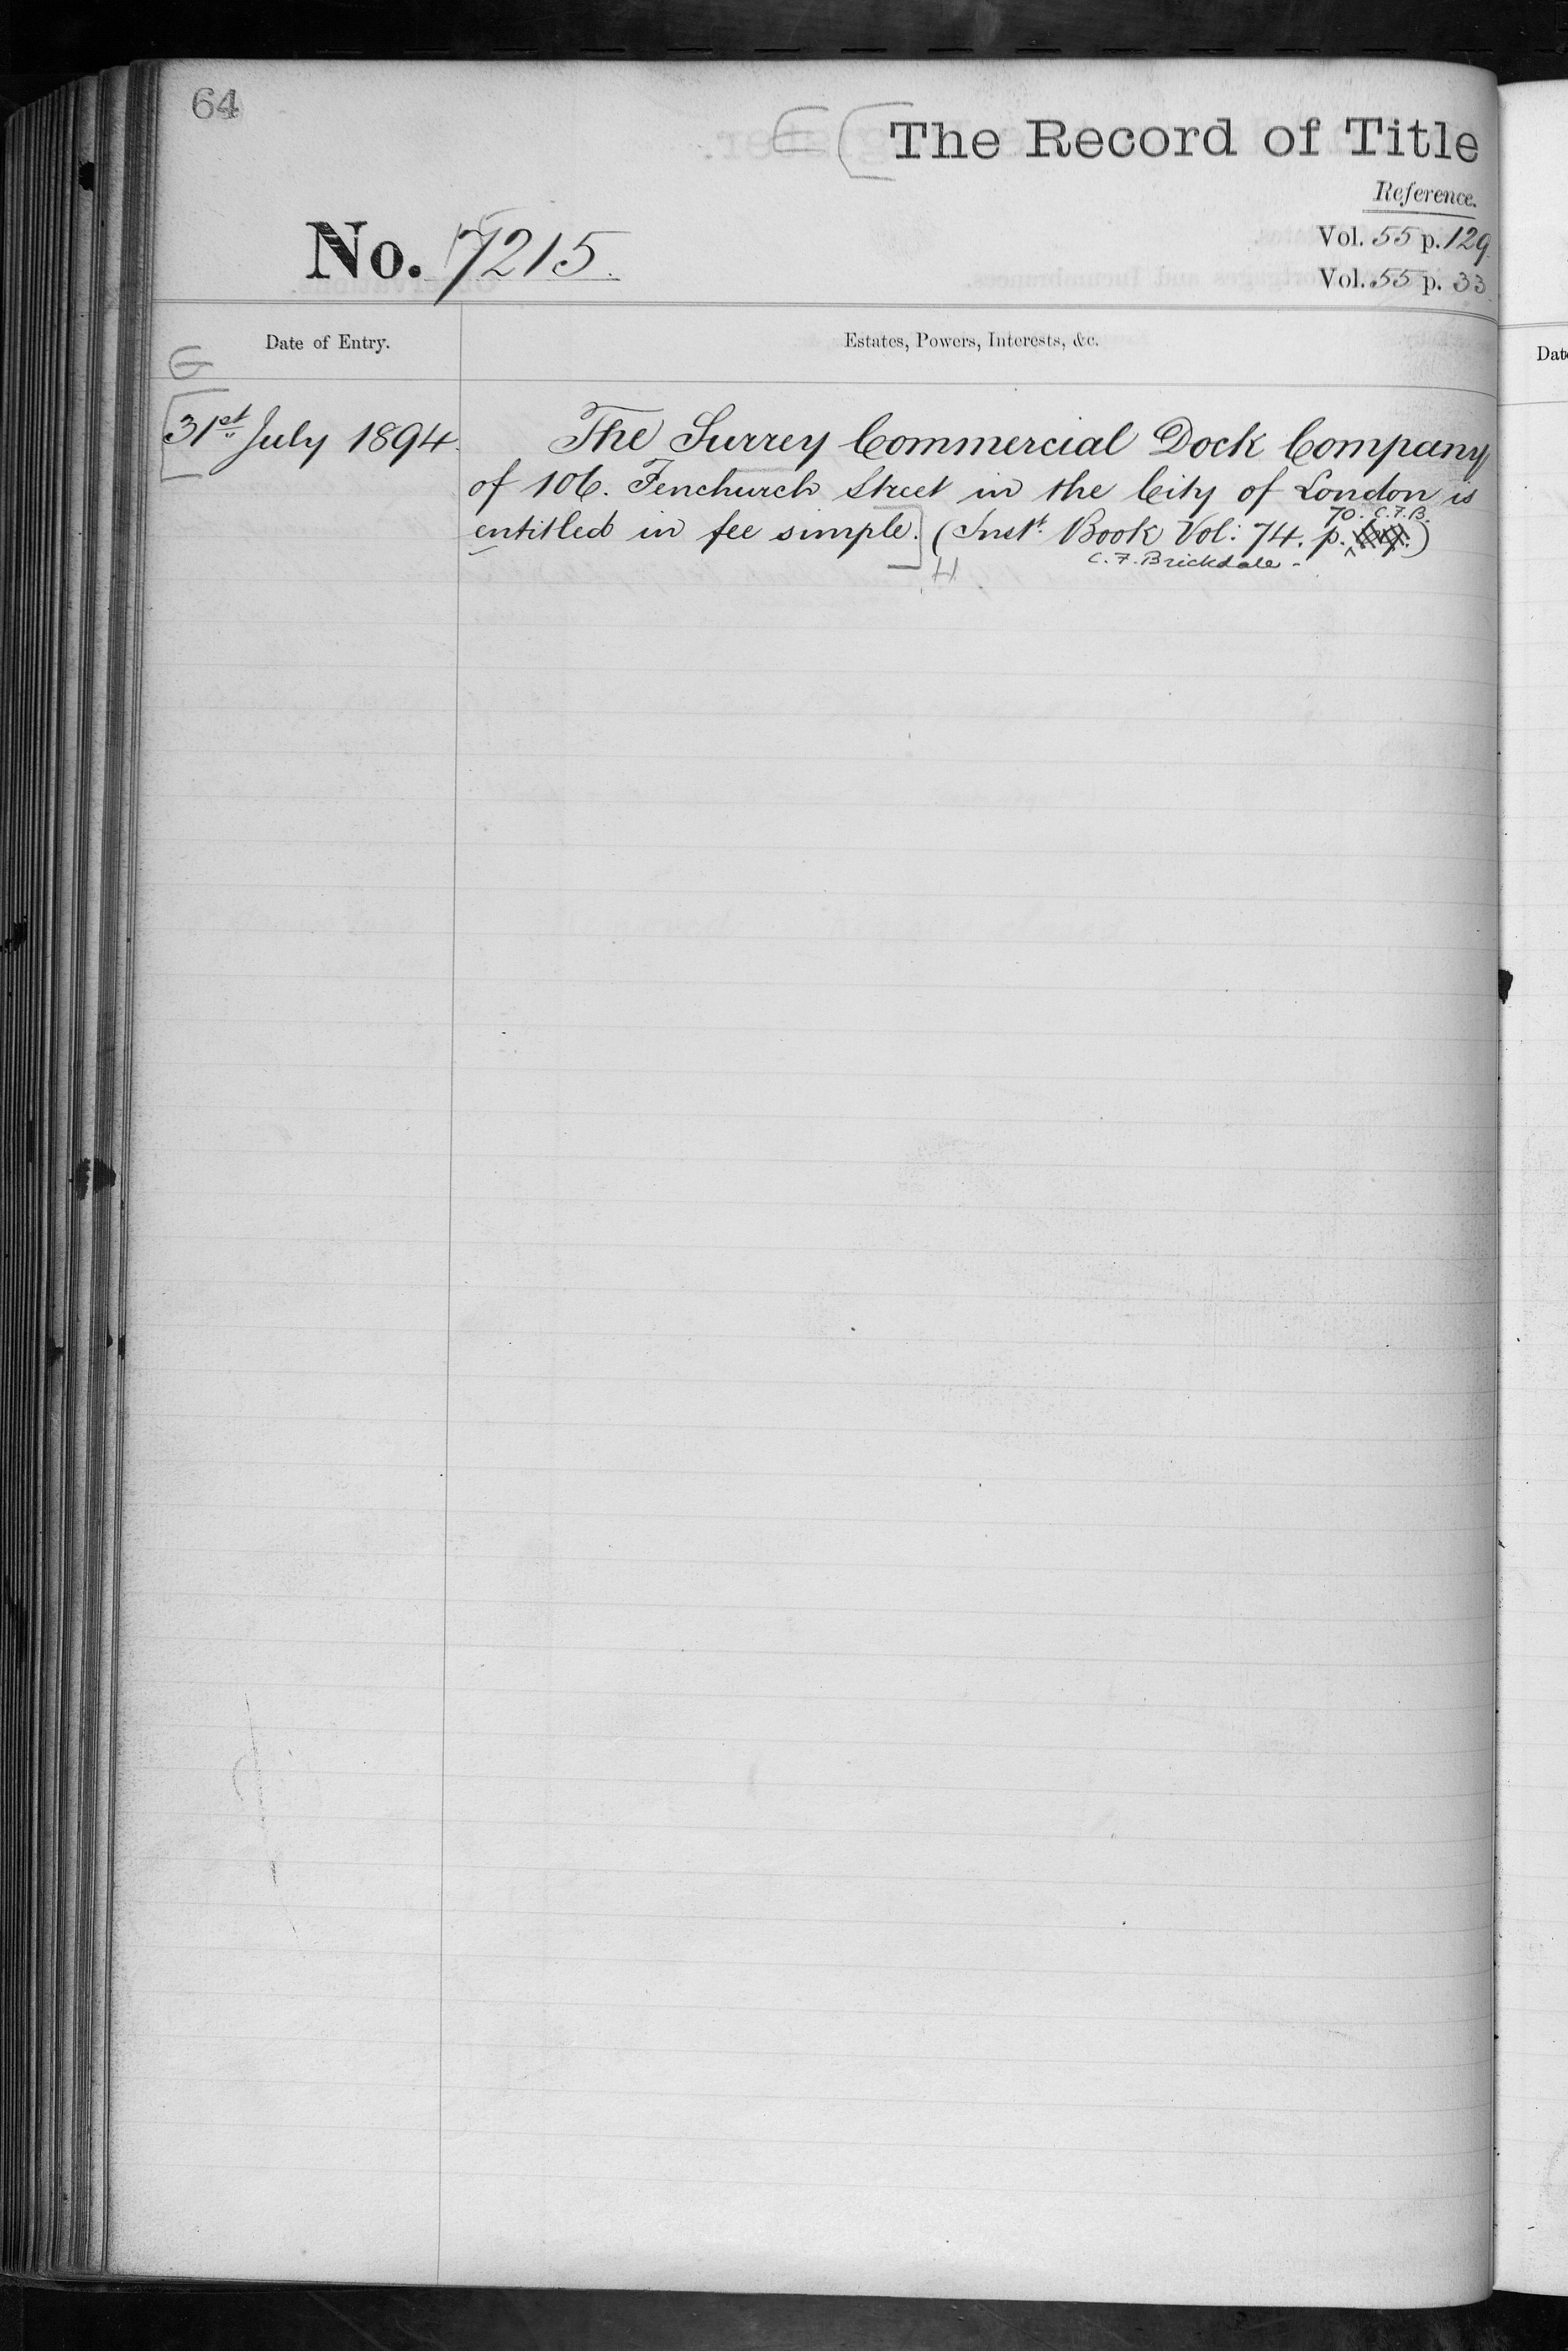 64
E [ The Record of Title
Reference.
No. 7215.
Vol. 55 p. 129
Vol. 55 p. 33
Date of Entry.
Estates, Powers, Interests, &c.
Date
G
[31st July 1894.
The Surrey Commercial Dock Company
of 106. Fenchurch Street in the City of London is
70. C.F.B.
entitled in fee simple.] (Inst. Book Vol: 74. p. )
H
C. F. Brickdale -